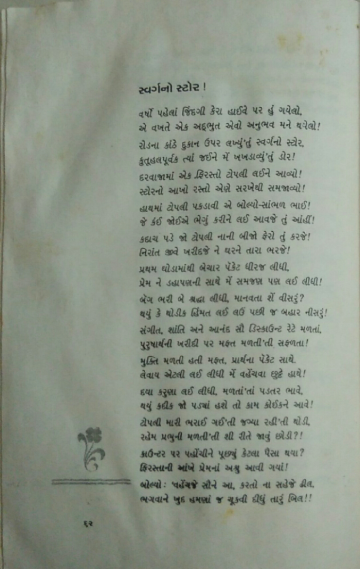 સ્વર્ગનો સ્ટોર !
વર્ષો પહેલાં જિંદગી કેરા હાઈવે પર હું ગયેલો,
એ વખતે એક અદ્ભુત એવો અનુભવ મને થયેલો!
રોડના કાંઠે દુકાન ઉપર લખ્યું'તું સ્વર્ગનો સ્ટોર,
કુતૂહલપૂર્વક ત્યાં જઈને મેં ખખડાવ્યું'તું ડોર!
દરવાજામાં એક ફિરસ્તો ટોપલી લઈને આવ્યો!
સ્ટોરનો આખો રસ્તો એણે સરખેથી સમજાવ્યો!
હાથમાં ટોપલી પકડાવી એ બોલ્યો-સાંભળ ભાઈ!
જે કંઈ જોઈએ ભેગું કરીને લઈ આવજે તું આંહીં!
કદાચ પડે જો ટોપલી નાની બીજો ફેરો તું કરજે!
નિરાંત જીવે ખરીદજે ને ઘરને તારા ભરજે!
પ્રથમ ઘોડામાંથી બેચાર પૅકેટ ધીરજ લીધી,
પ્રેમ ને ડહાપણની સાથે મેં સમજણ પણ લઈ લીધી!
બેગ ભરી બે શ્રદ્ધા લીધી, માનવતા શેં વીસરું?
થયું કે થોડીક હિંમત લઈ લઉં પછી જ બહાર નીસરું!
સંગીત, શાંતિ અને આનંદ સૌ ડિસ્કાઉન્ટ રેટે મળતાં,
પુરુષાર્થની ખરીદી પર મફત મળતી'તી સફળતા!
મુક્તિ મળતી હતી મફત, પ્રાર્થના પૅકેટ સાથે,
લેવાય એટલી લઈ લીધી મેં વહેંચવા છુટ્ટે હાથે!
દયા કરુણા લઈ લીધી, મળતાં'તાં પડતર ભાવે,
થયું કદીક જો પડ્યાં હશે તો કામ કોઈકને આવે!
ટોપલી મારી ભરાઈ ગઈ'તી જગ્યા રહી'તી થોડી,
રહેમ પ્રભુની મળતી'તી શી રીતે જાવું છોડી?!
કાઉન્ટર પર પહોંચીને પૂછ્યું કેટલા પૈસા થયા?
ફિરસ્તાની આંખે પ્રેમનાં અશ્રુ આવી ગયાં!
બોલ્યો: 'વહેંચજે સૌને આ, કરતો ના સહેજે ઢીલ,
ભગવાને ખુદ હમણાં જ ચૂકવી દીધું તારું બિલ!!
૬૨